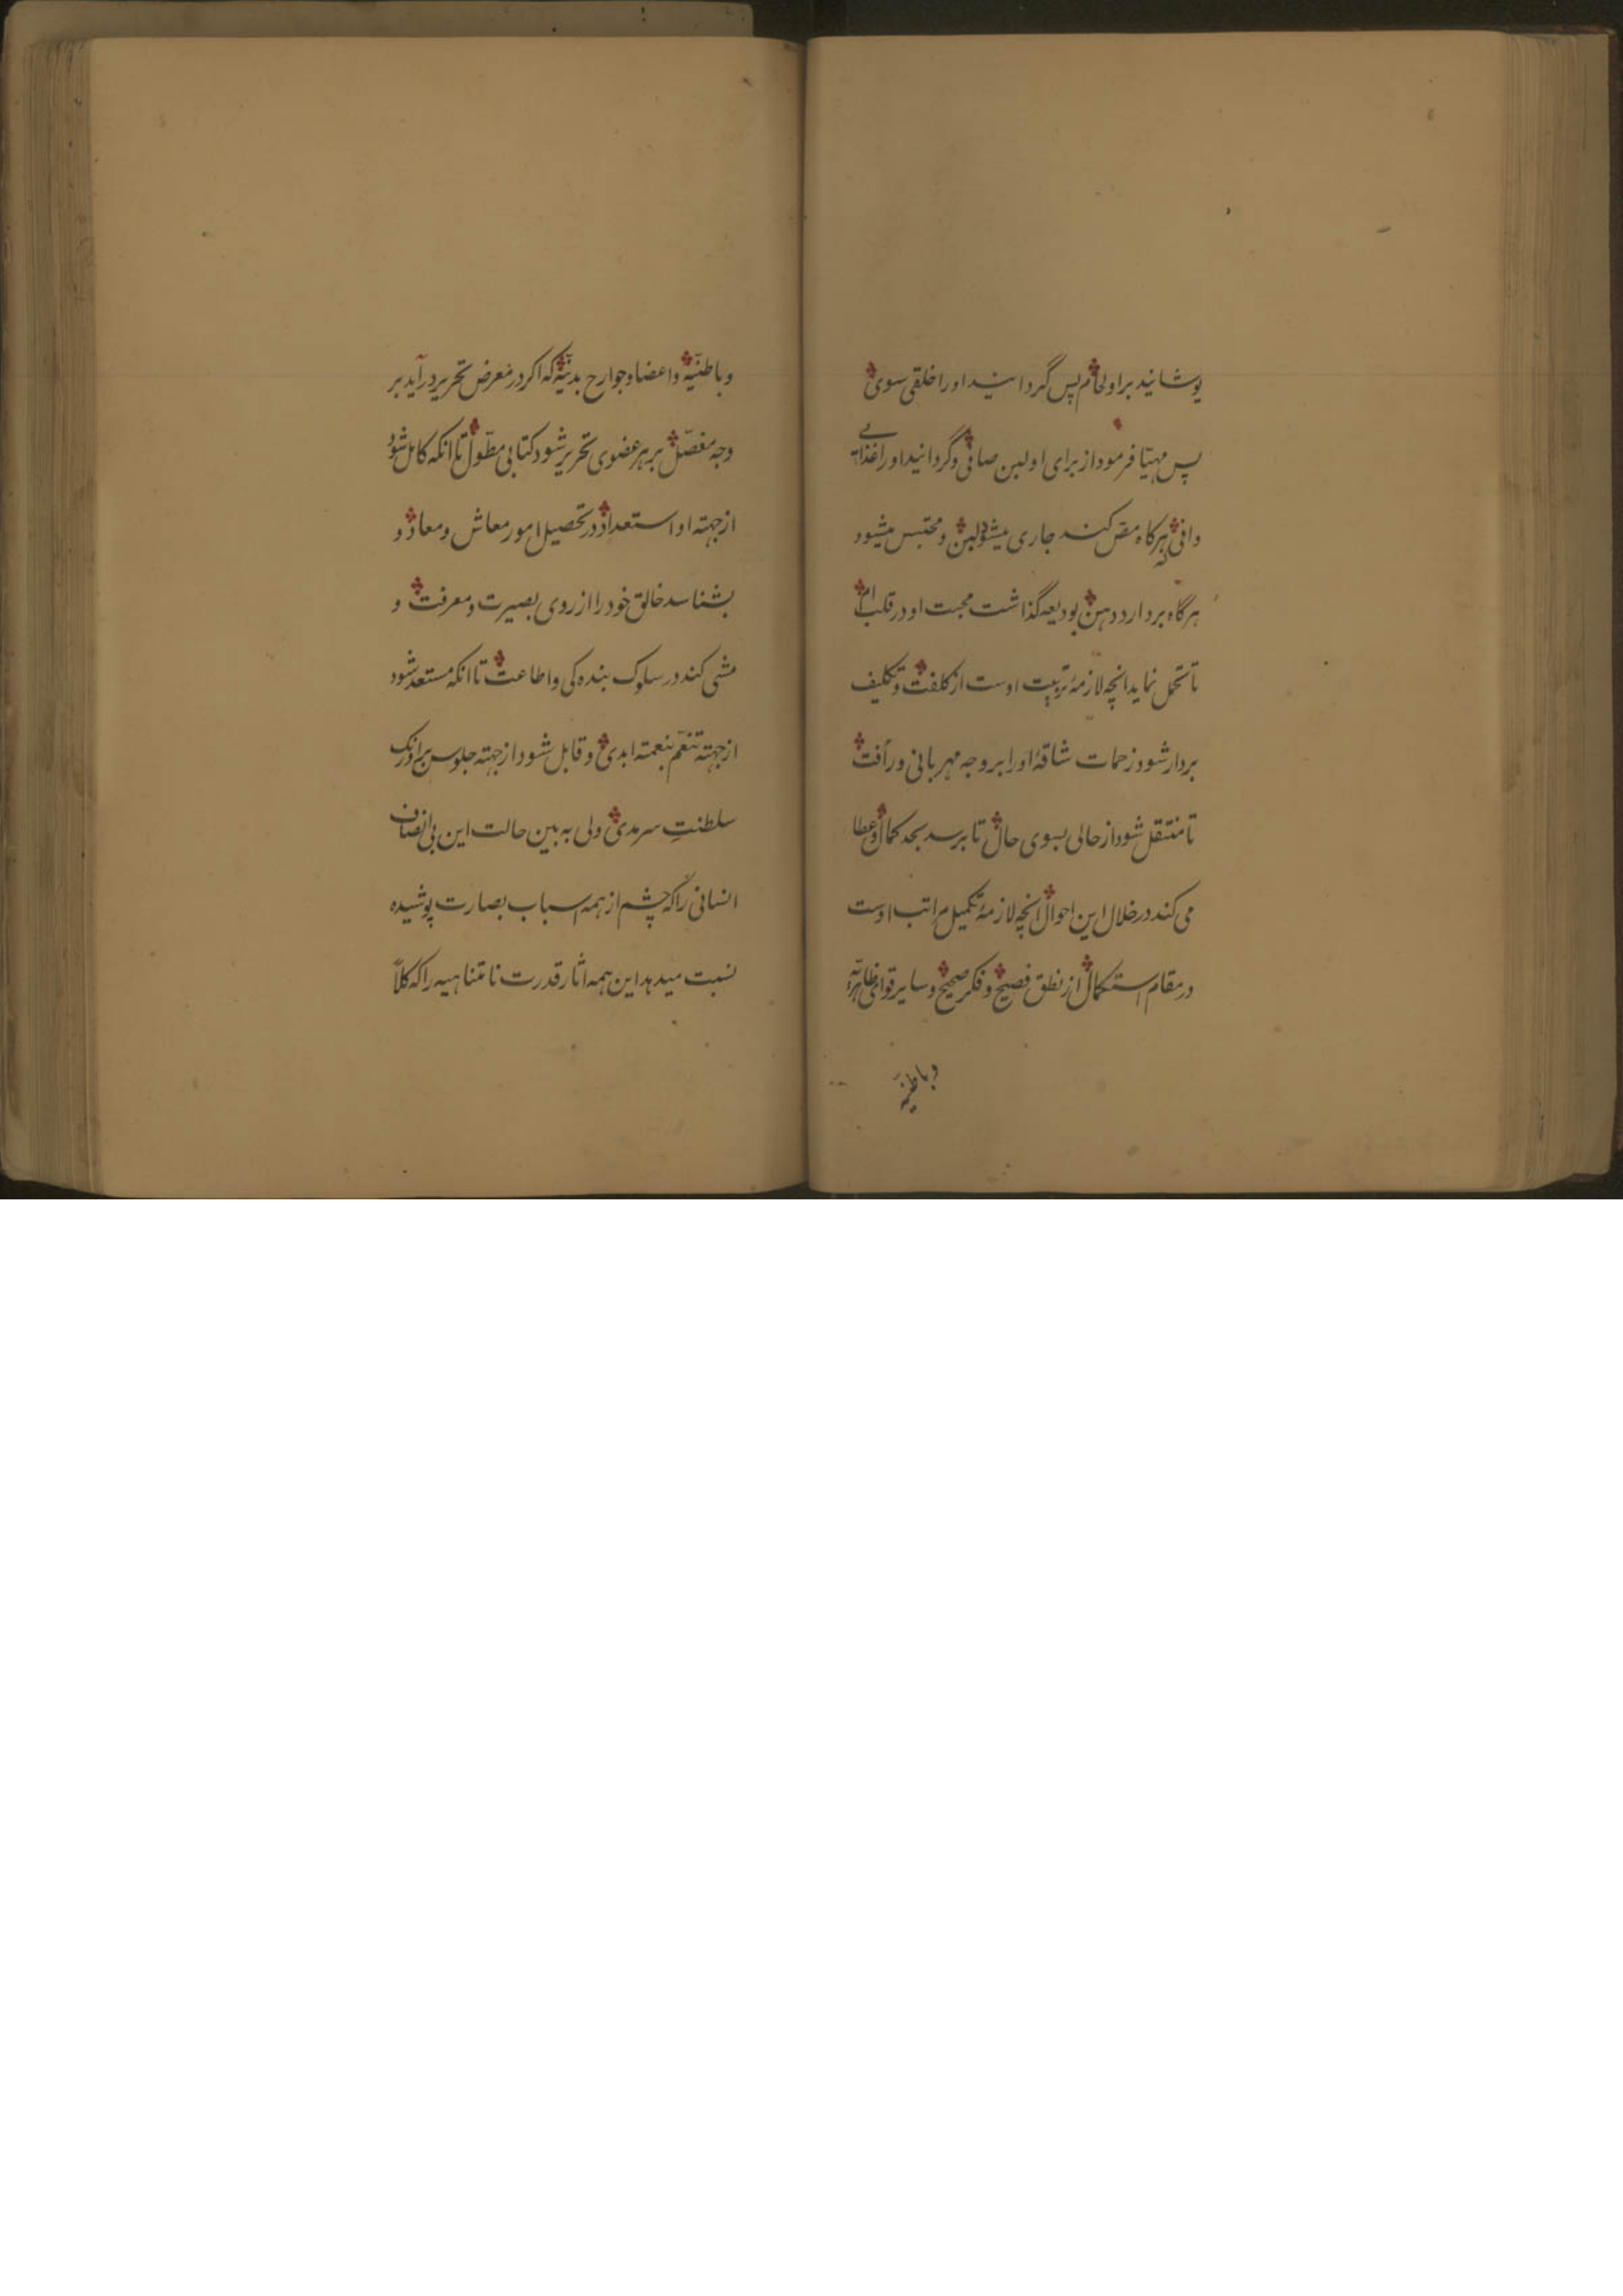 پوشانید بر او لحام پس گردانید او را خلقی سوی
پس مهیّا فرمود از برای او لبن صافی و گردانید او را غذائے
وافی که هرکاه مص کند جاری میشود لبن و محتبس میشود
هرگاه بردارد دهن بودیعه گذاشت محبت او در قلب ام
تا تحمل نماید انچه لازمهٔ تربیت اوست از کلفت و تکلیف
بردار شود زحمات شاقهٔ او را بر وجه مهربانی و رأفت
تا منتقل شود از حالی بسوی حال تا برسد بحد کمال و عطا
می کند در خلال این احوال انچه لازمهٔ تکمیل مراتب اوست
در مقام استکمال از نطق فصیح و فکر صحیح و سایر قوای ظاهریّه
و باطنیه
و باطنیّه و اعضا و جوارح بدنیّه که اکر در معرض تحریر در آید بر
وجه مفصّل بر هر عضوی تحریر شود کتابی مطّول تا انکه کامل شود
از جهته او استعداد در تحصیل امور معاش و معاد و
بشناسد خالق خود را از روی بصیرت و معرفت و
مشی کند در سلوک بنده کی و اطاعت تا انکه مستعد شود
از جهته تنعّم بنعمته ابدی و قابل شود از جهته جلوس بر اورنک
سلطنتِ سرمدی ولی به بین حالت این بی انصاف
انسانی را که چشم از همه اسباب بصارت پوشیده
نسبت میدهد این همه اثار قدرت نامتناهیه را که کلاً